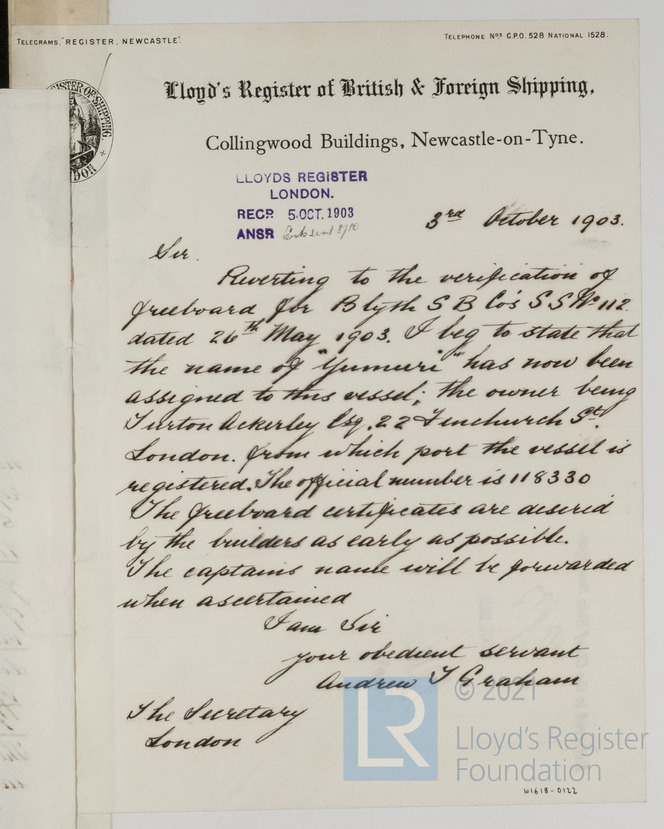 TELEGRAMS, "REGISTER, NEWCASTLE".
TELEPHONE Nos G.P.O. 528 NATIONAL 1528.
Lloyd's Register of British & Foreign Shipping,
Collingwood Buildings, Newcastle-on-Tyne.
LLOYDS REGISTER
LONDON.
RECD. 5.OCT.1903
ANSR
3rd October 1903.
Sir.
Reverting to the verification of
freeboard for Blyth S B Co's S S No 112
dated 26th May 1903. I beg to state that
the name of "Yumuri" has now been
assigned to this vessel; the owner being
Turton Ackerley Esq. 22 Fenchurch St.
London. from which port the vessel is
registered. The official number is 118330
The freeboard certificates are desired
by the builders as early as possible.
The captains name will be forwarded
when ascertained
I am Sir
your obedient servant
Andrew T Graham
The Secretary
London
© 2021
LR
Lloyd's Register
Foundation
W1618-0122